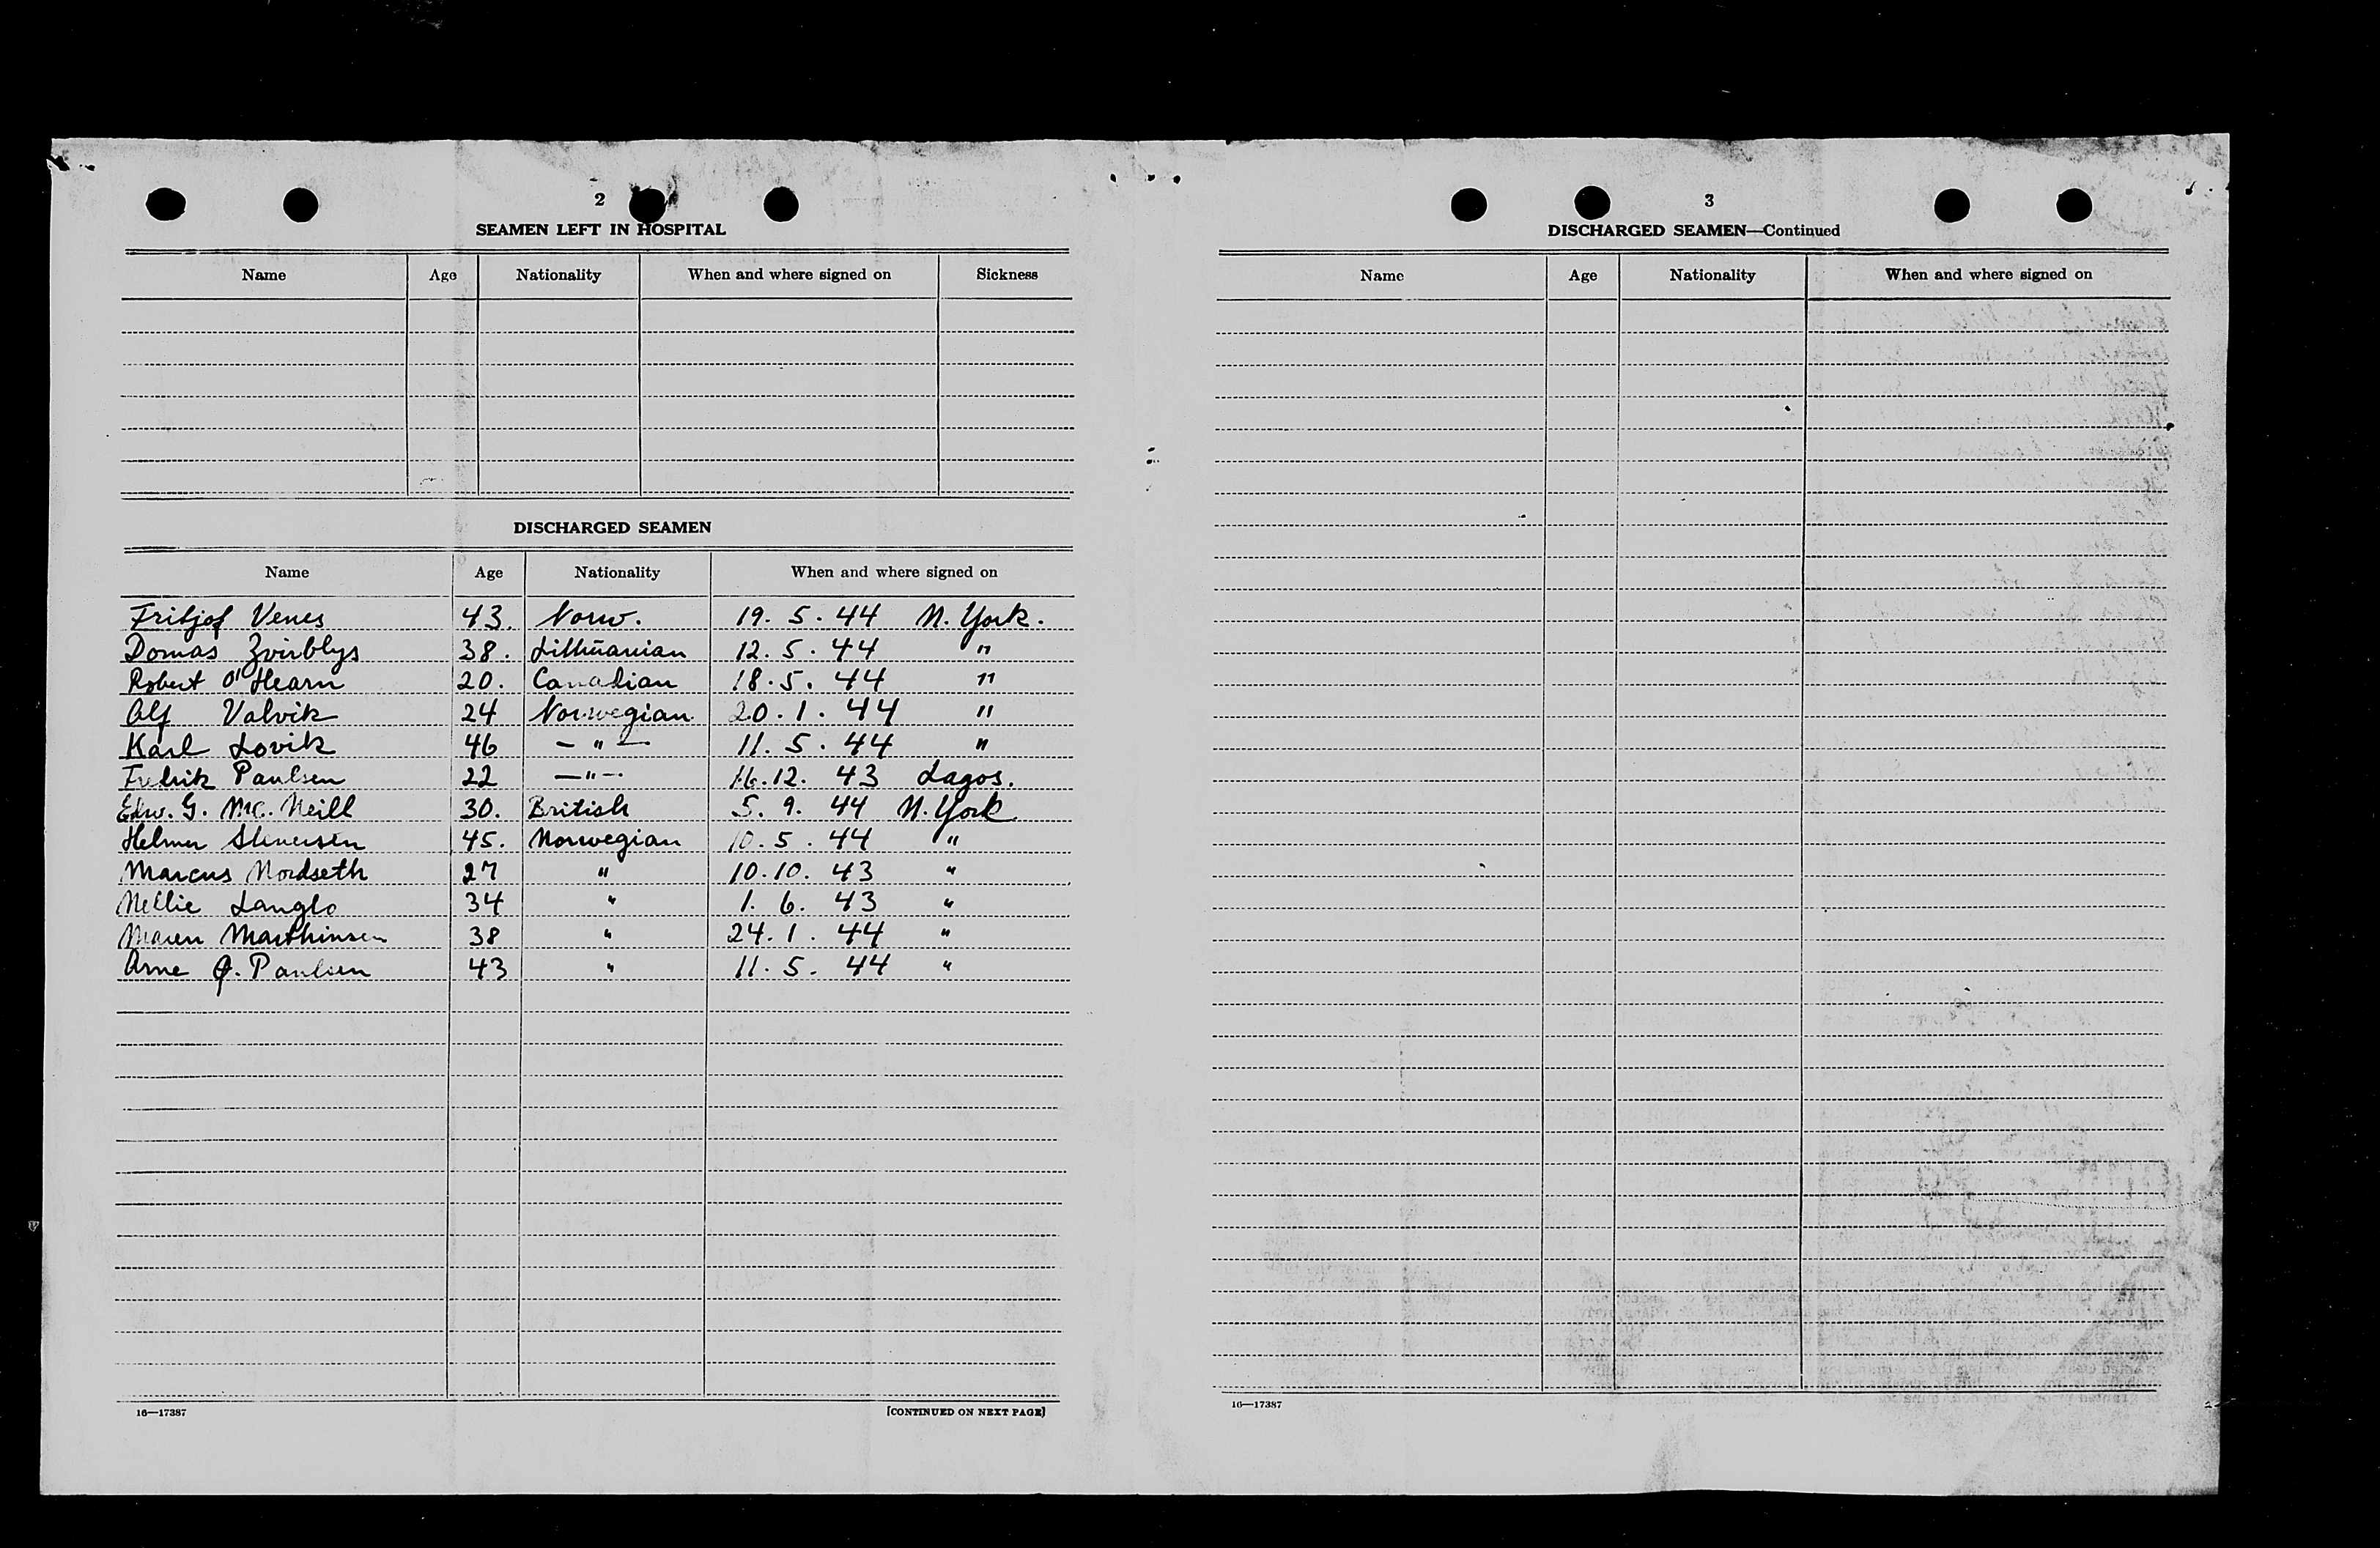 2
SEAMEN LEFT IN HOSPITAL
Name Age Nationality When and where signed on Sickness
DISCHARGED SEAMEN
Name Age Nationality When and where signed on
Fritjof Venes 43. Norw. 19. 5. 44 N. York.
Domas Zvirblys 38. Lithuanian 12. 5. 44 "
Robert O'Hearn 20. Canadian 18. 5. 44 "
Alf Valvik 24 Norwegian 20. 1. 44 "
Karl Lovik 46 — " — 11. 5. 44 "
Fredrik Paulsen 22 — " — 16. 12. 43 Lagos.
Edw. G. Mc. Neill 30. British 5. 9. 44 N. York
Helmer 45. Norwegian 10. 5. 44 "
Marcus Nordseth 27 " 10. 10. 43 "
Nellie Langlo 34 " 1. 6. 43 "
Maren Marthinsen 38 " 24. 1. 44 "
Arne Paulsen 43 " 11. 5. 44 "
16—17387 [CONTINUED ON NEXT PAGE]
3
DISCHARGED SEAMEN—Continued
Name Age Nationality When and where signed on
16—17387